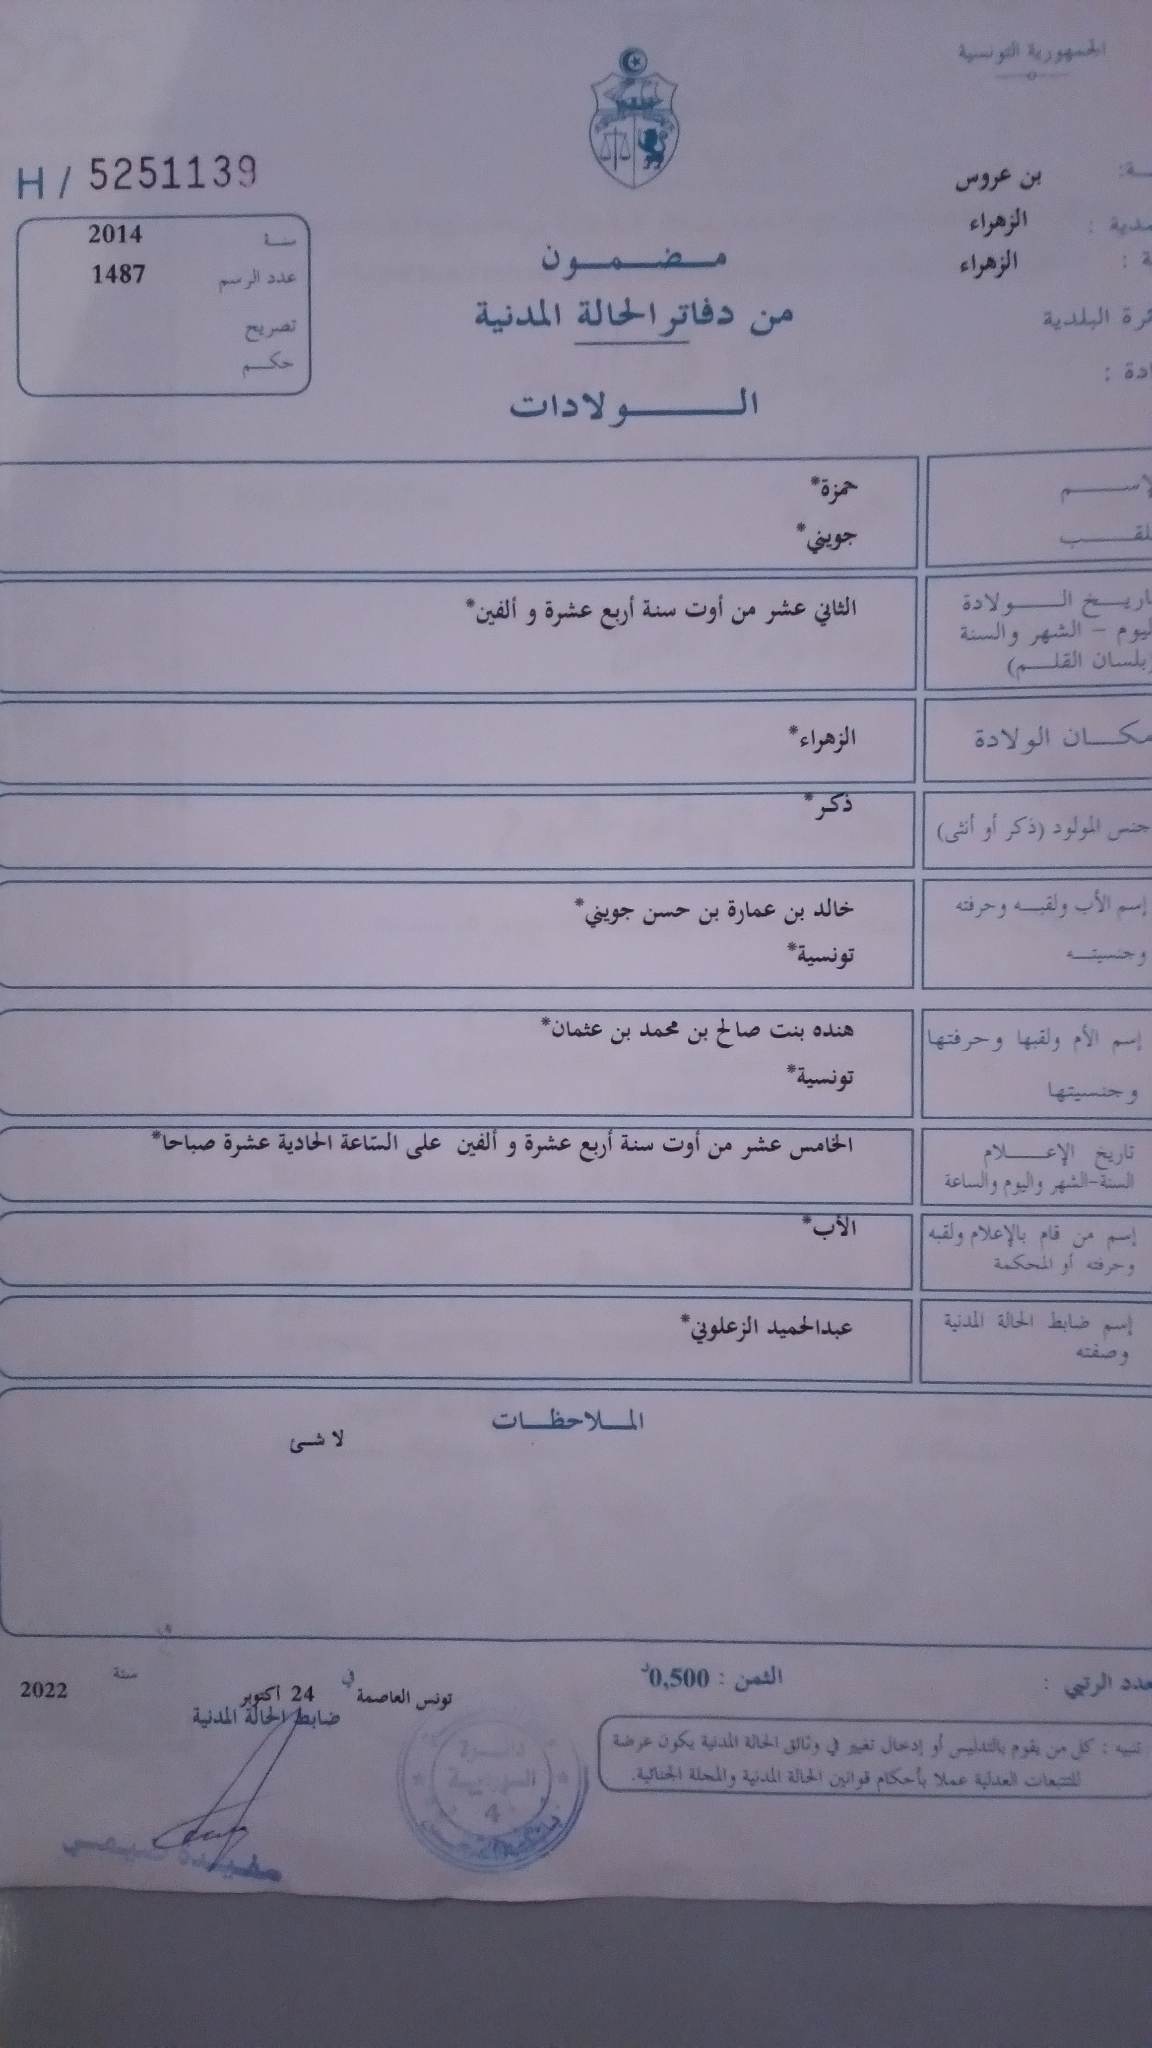 الجمهورية التونسية
H / 5251139
بن عروس
الزهراء
الزهراء
البلدية
سنة 2014
عدد الرسم 1487
تصريح
حكم
مضمون
من دفاتر الحالة المدنية
الولادات
حمزة*
جويني*
تاريخ الولادة
اليوم - الشهر والسنة
(بلسان القلم)
الثاني عشر من أوت سنة أربع عشرة و ألفين*
مكان الولادة
الزهراء*
جنس المولود (ذكر أو أنثى)
ذكر*
إسم الأب ولقبه وحرفته
وجنسيته
خالد بن عمارة بن حسن جويني*
تونسية*
إسم الأم ولقبها وحرفتها
وجنسيتها
هنده بنت صالح بن محمد بن عثمان*
تونسية*
تاريخ الإعلام
السنة-الشهر واليوم والساعة
الخامس عشر من أوت سنة أربع عشرة و ألفين على الساعة الحادية عشرة صباحا*
إسم من قام بالإعلام ولقبه
وحرفته أو المحكمة
الأب*
إسم ضابط الحالة المدنية
وصفته
عبدالحميد الزعلوني*
الملاحظات
لا شئ
عدد الرتبي :
الثمن : 0,500د
تونس العاصمة في 24 أكتوبر سنة 2022
ضابط الحالة المدنية
تنبيه : كل من يقوم بالتدليس أو إدخال تغيير في وثائق الحالة المدنية يكون عرضة
للتتبعات العدلية عملا بأحكام قوانين الحالة المدنية والمجلة الجنائية.
دائرة
4